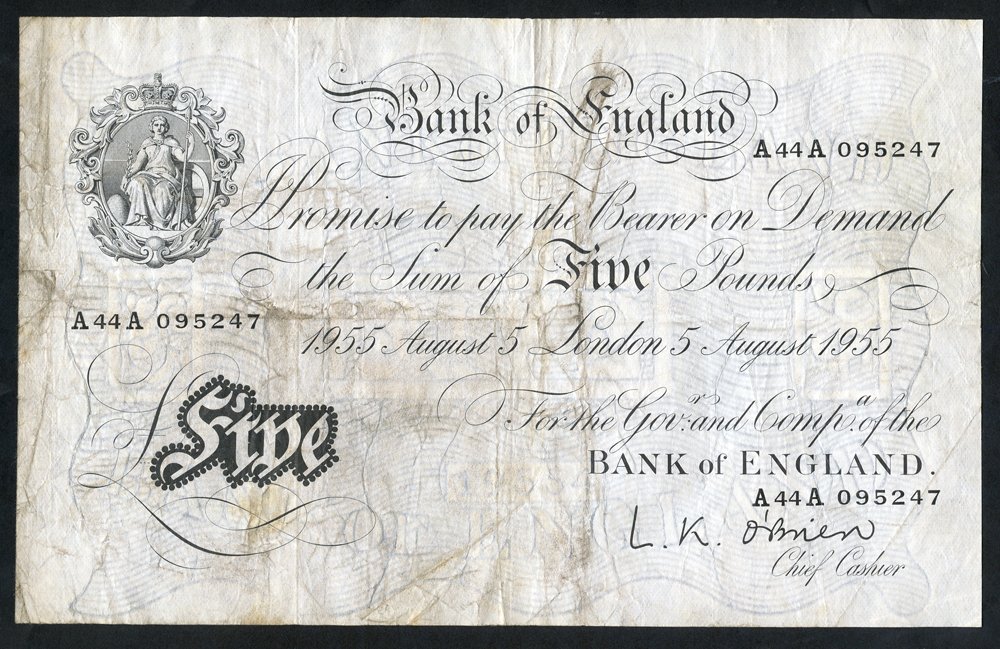 Bank of England
A44A 095247
I Promise to pay the Bearer on Demand
the Sum of Five Pounds
A44A 095247
1955 August 5 London 5 August 1955
Five
For the Gov.r and Comp.a of the
BANK of ENGLAND.
A44A 095247
L. K. O'Brien
Chief Cashier